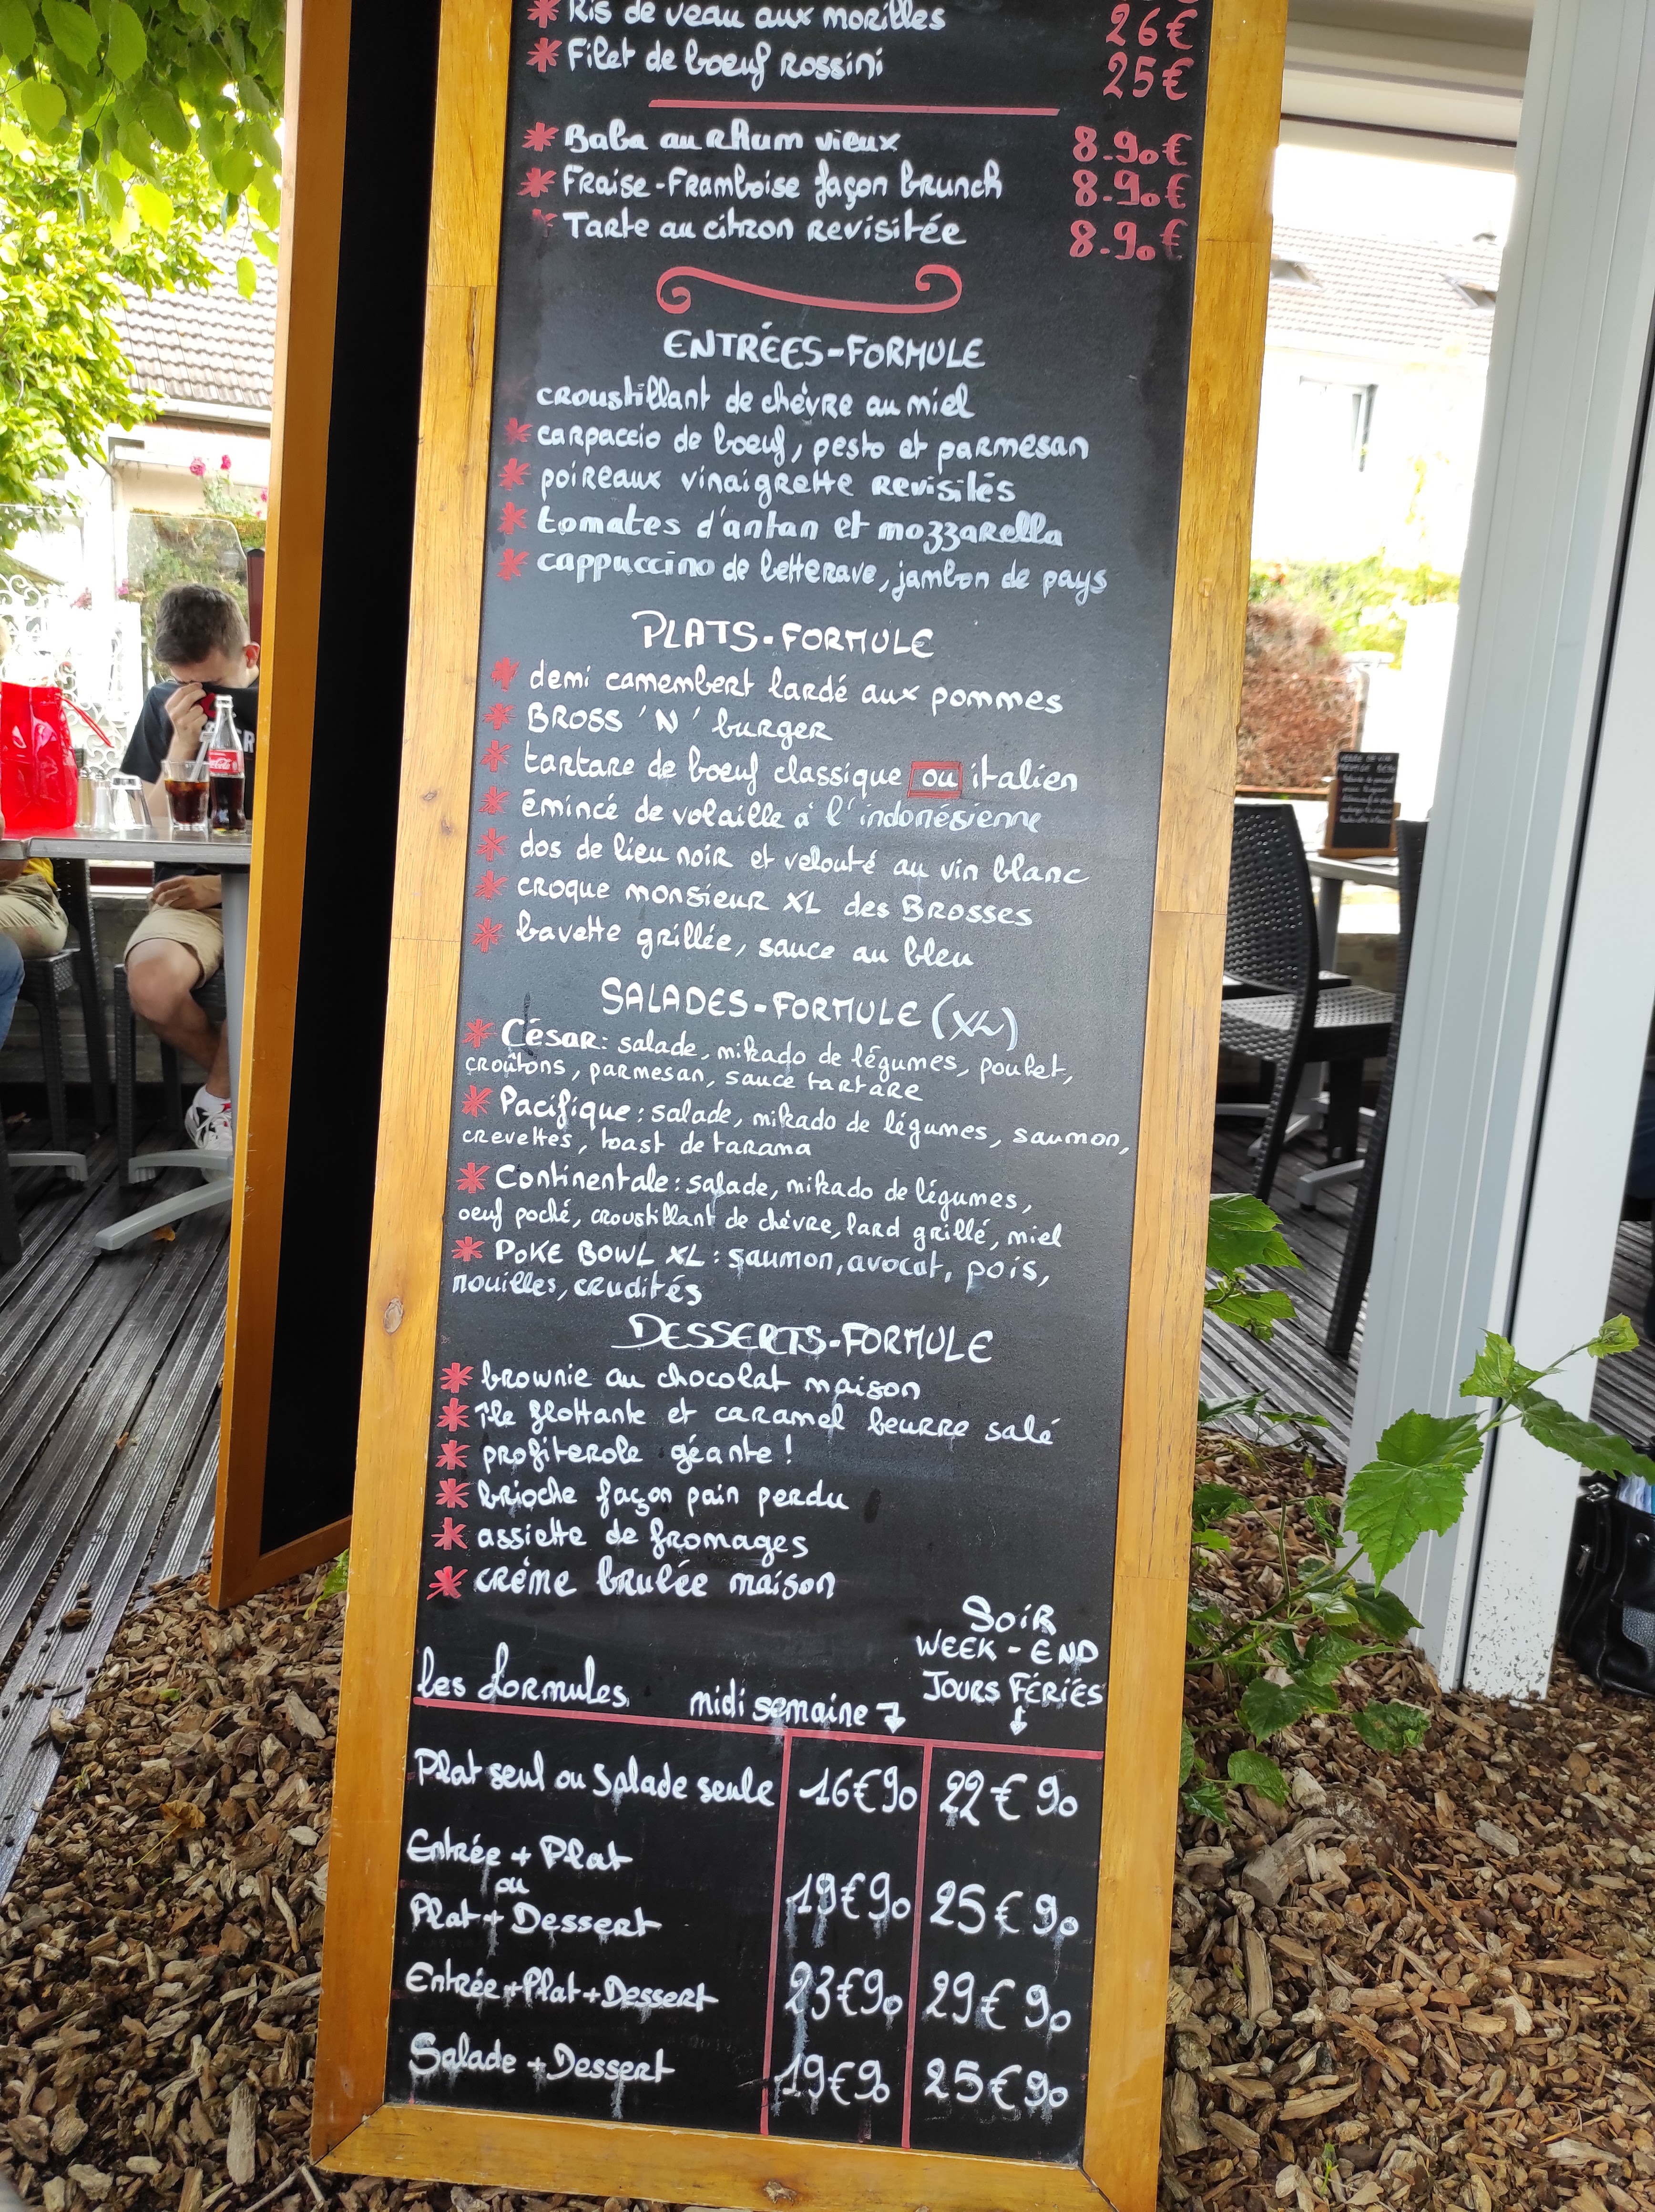 Ris de veau aux morilles 26€
Filet de boeuf rossini 25€
Baba au rhum vieux 8.90€
Fraise-Framboise façon brunch 8.90€
Tarte au citron revisitée 8.90€
ENTRÉES-FORMULE
croustillant de chèvre au miel
carpaccio de boeuf, pesto et parmesan
poireaux vinaigrette revisités
tomates d'antan et mozzarella
cappuccino de betterave, jambon de pays
PLATS-FORMULE
demi camembert lardé aux pommes
BROSS 'N' burger
tartare de boeuf classique ou italien
émincé de volaille à l'indonésienne
dos de lieu noir et velouté au vin blanc
croque monsieur XL des BROSSES
bavette grillée, sauce au bleu
SALADES-FORMULE (XL)
César: salade, mikado de légumes, poulet,
croûtons, parmesan, sauce tartare
Pacifique: salade, mikado de légumes, saumon,
crevettes, toast de tarama
Continentale: salade, mikado de légumes,
oeuf poché, croustillant de chèvre, lard grillé, miel
POKE BOWL XL: saumon, avocat, pois,
nouilles, crudités
DESSERTS-FORMULE
brownie au chocolat maison
île flottante et caramel beurre salé
profiterole géante!
brioche façon pain perdu
assiette de fromages
crème brulée maison
SOIR
WEEK-END
JOURS FÉRIÉS
les formules midi semaine
Plat seul ou Salade seule 16€90 22€90
Entrée + Plat
ou
Plat + Dessert 19€90 25€90
Entrée+Plat+Dessert 23€90 29€90
Salade + Dessert 19€90 25€90